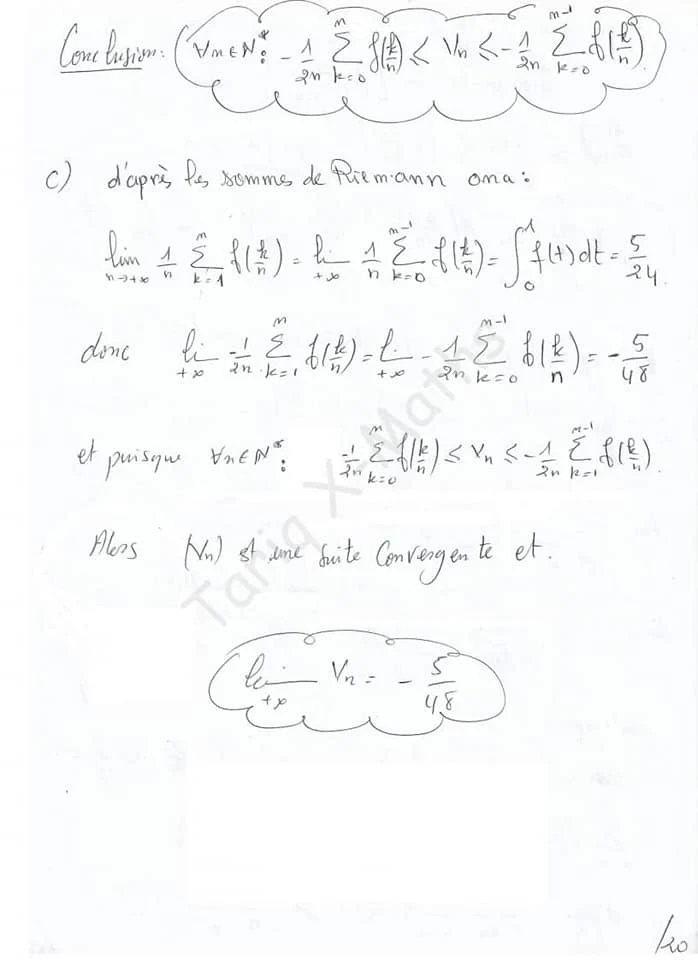 Conclusion: ∀n∈ℕ*: - 1/2n ∑_{k=0}^{n} f(k/n) ≤ Vn ≤ - 1/2n ∑_{k=0}^{n-1} f(k/n)
c) d'après les sommes de Riemann ona:
lim_{n→+∞} 1/n ∑_{k=1}^{n} f(k/n) = lim_{+∞} 1/n ∑_{k=0}^{n-1} f(k/n) = ∫_0^1 f(t) dt = 5/24
donc lim_{+∞} -1/2n ∑_{k=1}^{n} f(k/n) = lim_{+∞} - 1/2n ∑_{k=0}^{n-1} f(k/n) = - 5/48
et puisque ∀n∈ℕ*: -1/2n ∑_{k=0}^{n} f(k/n) ≤ Vn ≤ - 1/2n ∑_{k=1}^{n-1} f(k/n)
Alors (Vn) est une suite Convergente et.
lim_{+∞} Vn = - 5/48
Tariq X-Maths
/20